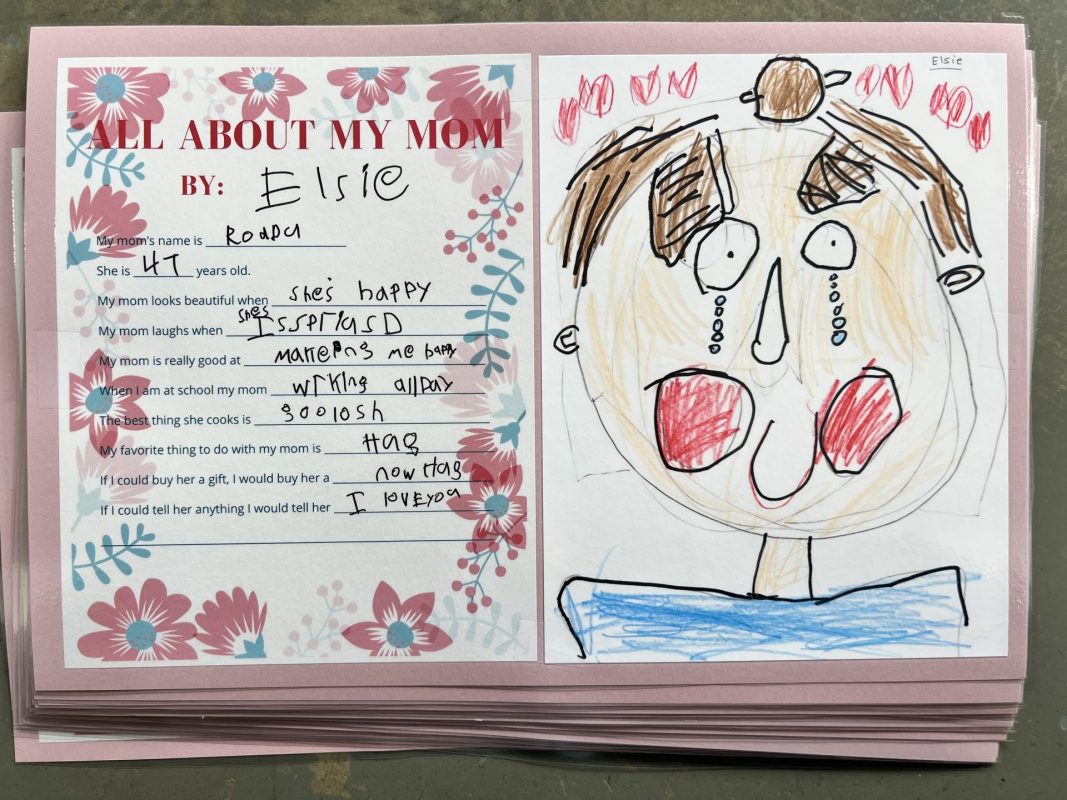 ALL ABOUT MY MOM
BY: Elsie
My mom's name is Ronda
She is 47 years old.
My mom looks beautiful when she's happy
My mom laughs when she's IssprIasD
My mom is really good at makeing me happy
When I am at school my mom wrking allday
The best thing she cooks is goolosh
My favorite thing to do with my mom is Hag
If I could buy her a gift, I would buy her a now Hag
If I could tell her anything I would tell her I loveyou
Elsie